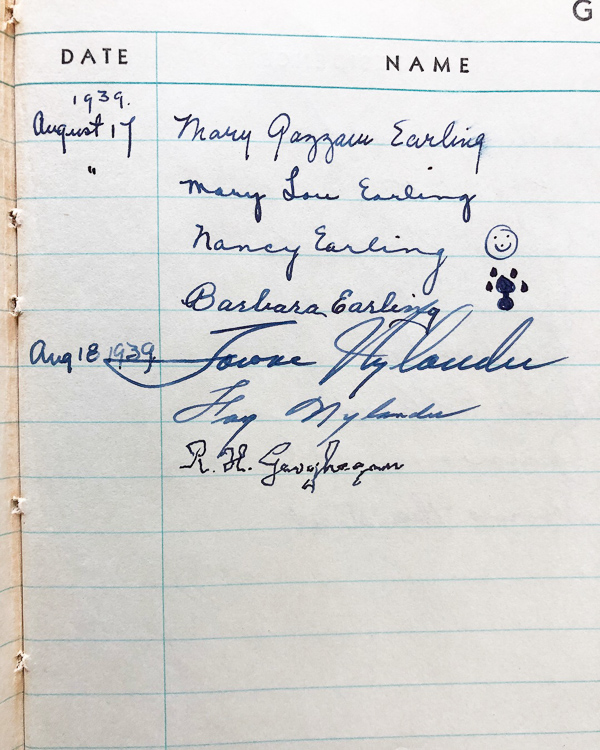 G
DATE NAME
1939.
August 17 Mary Gazzam Earling
" Mary Lou Earling
Nancy Earling
Barbara Earling
Aug 18 1939 Nylander
Fay Nylander
R. H. Geoghegan